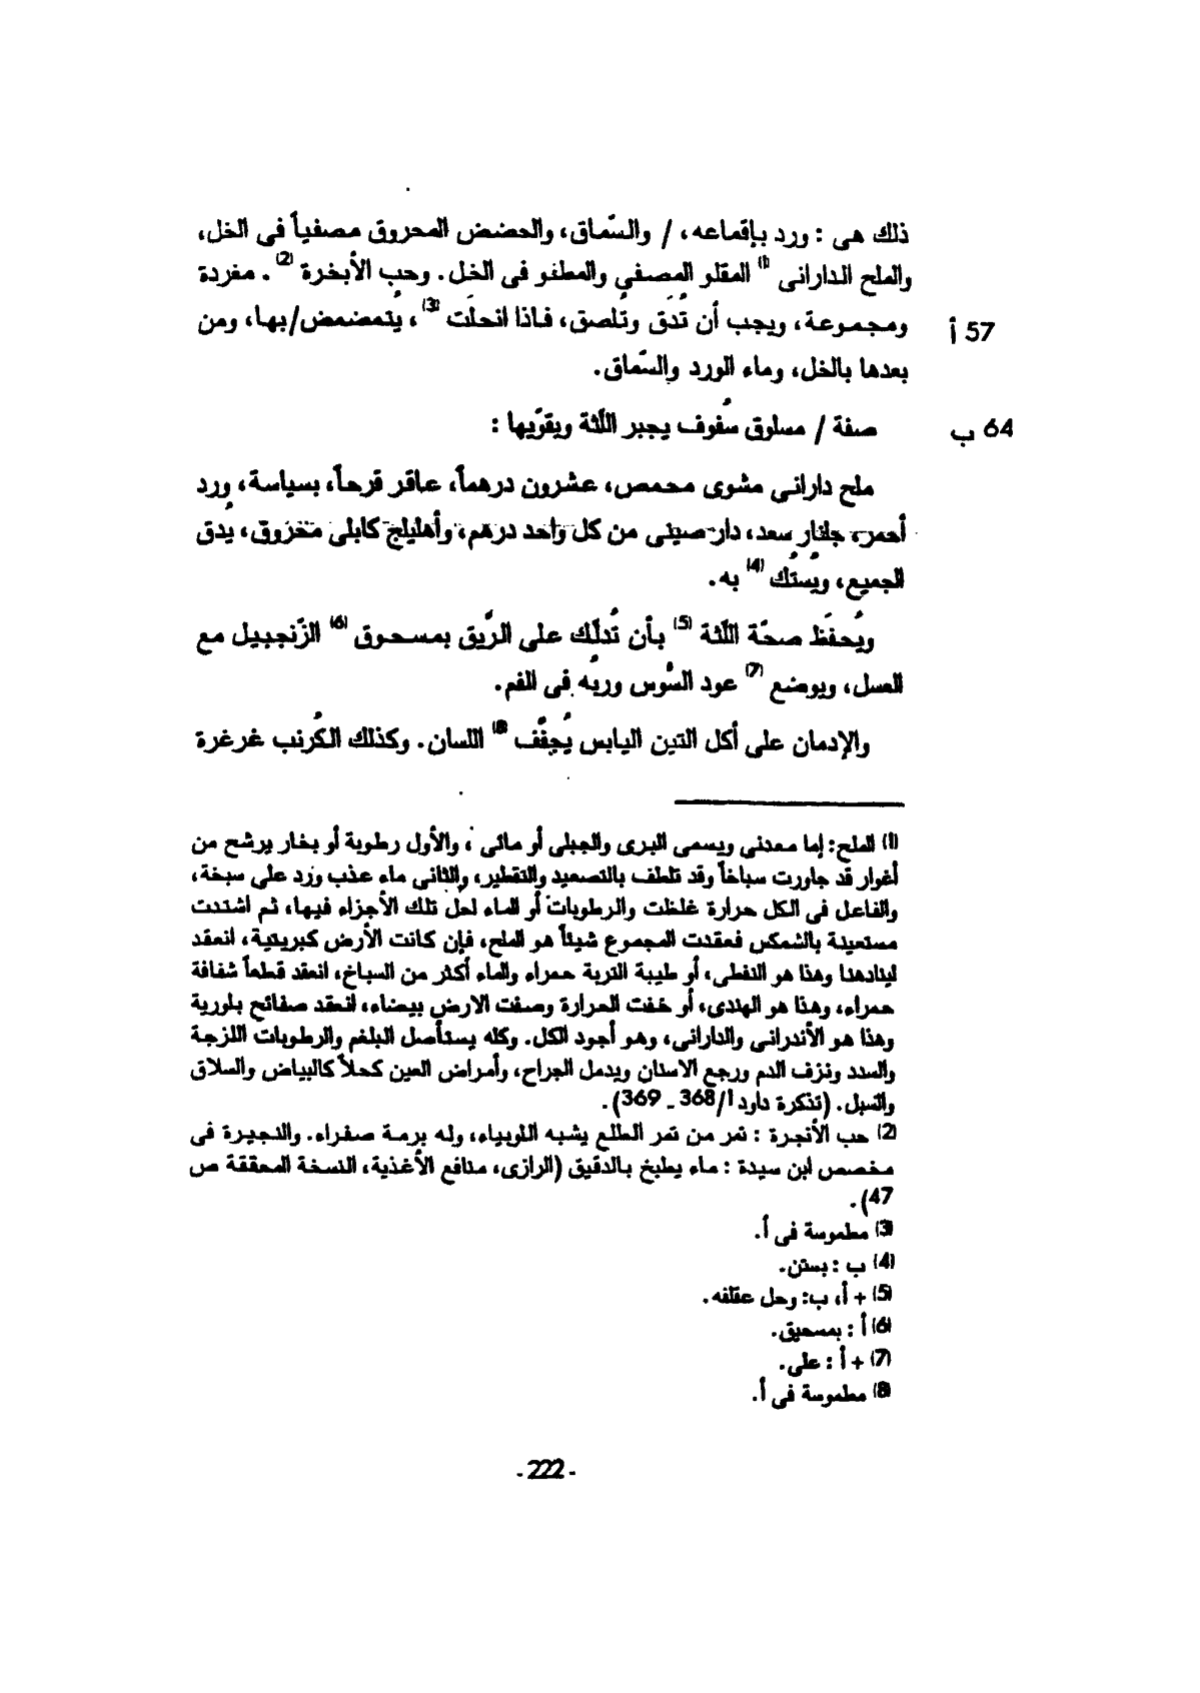 ذلك هى : ورد بإقماعه، / والسّماق، والحضض المحروق مصفياً فى الخل،
والملح الدارانى (1) المقلو المصفي والمطفو فى الخل. وحب الأبخرة (2). مفردة
57 أ ومجموعة، ويجب أن تُدَق وتُلصق، فاذا انحلَت (3)، يُتمضمض/بها، ومن
بعدها بالخل، وماء الورد والسّماق.
64 ب صفة / مسلوق سُفوف يجبر اللّثة ويقوّيها :
ملح دارانى مشوى محمص، عشرون درهماً، عاقر قرحاً، بسياسة، ورد
أحمر، جلنار سعد، دار صينى من كل واحد درهم، وأهليلج كابلى مخزوق، يُدق
الجميع، ويُستُك (4) به.
ويُحفَظ صحّة اللّثة (5) بأن تُدلّك على الرّيق بمسحوق (6) الزّنجبيل مع
العسل، ويوضع (7) عود السُّوس وربُه فى الفم.
والإدمان على أكل التين اليابس يُجفّف (8) اللسان. وكذلك الكُرنب غرغرة
(1) الملح: إما معدنى ويسمى البرى والجبلى أو مائى، والأول رطوبة أو بخار يرشح من
أغوار قد جاورت سباخاً وقد تلطف بالتصعيد والتقطير، والثانى ماء عذب ورد على سبخة،
والفاعل فى الكل حرارة غلظت والرطوبات أو الماء لحل تلك الأجزاء فيها، ثم اشتدت
مستعينة بالشمكس فعقدت المجموع شيئاً هو الملح، فإن كانت الأرض كبريتية، انعقد
وهذا هو النفطى، أو طيبة التربة حمراء والماء أكثر من السباخ، انعقد قطعاً شفافة
حمراء، وهذا هو الهندى، أو خفت الحرارة وصفت الارض بيضاء، انعقد صفائح بلورية
وهذا هو الأندرانى والدارانى، وهو أجود الكل. وكله يستأصل البلغم والرطوبات اللزجة
والسدد ونزف الدم ورجع الاسنان ويدمل الجراح، وأمراض العين كحلاً كالبياض والسلاق
والسبل. (تذكرة داود 1/368 ـ 369).
(2) حب الأنجرة : ثمر من ثمر الطلع يشبه اللوبياء، وله برمة صفراء. والنجيرة فى
مخصص ابن سيدة : ماء يطبخ بالدقيق (الرازى، منافع الأغذية، النسخة المحققة ص
47).
(3) مطموسة فى أ.
(4) ب : بستن.
(5) + أ، ب: وحل عقلفه.
(6) أ : بمسحيق.
(7) + أ : على.
(8) مطموسة فى أ.
- 222 -